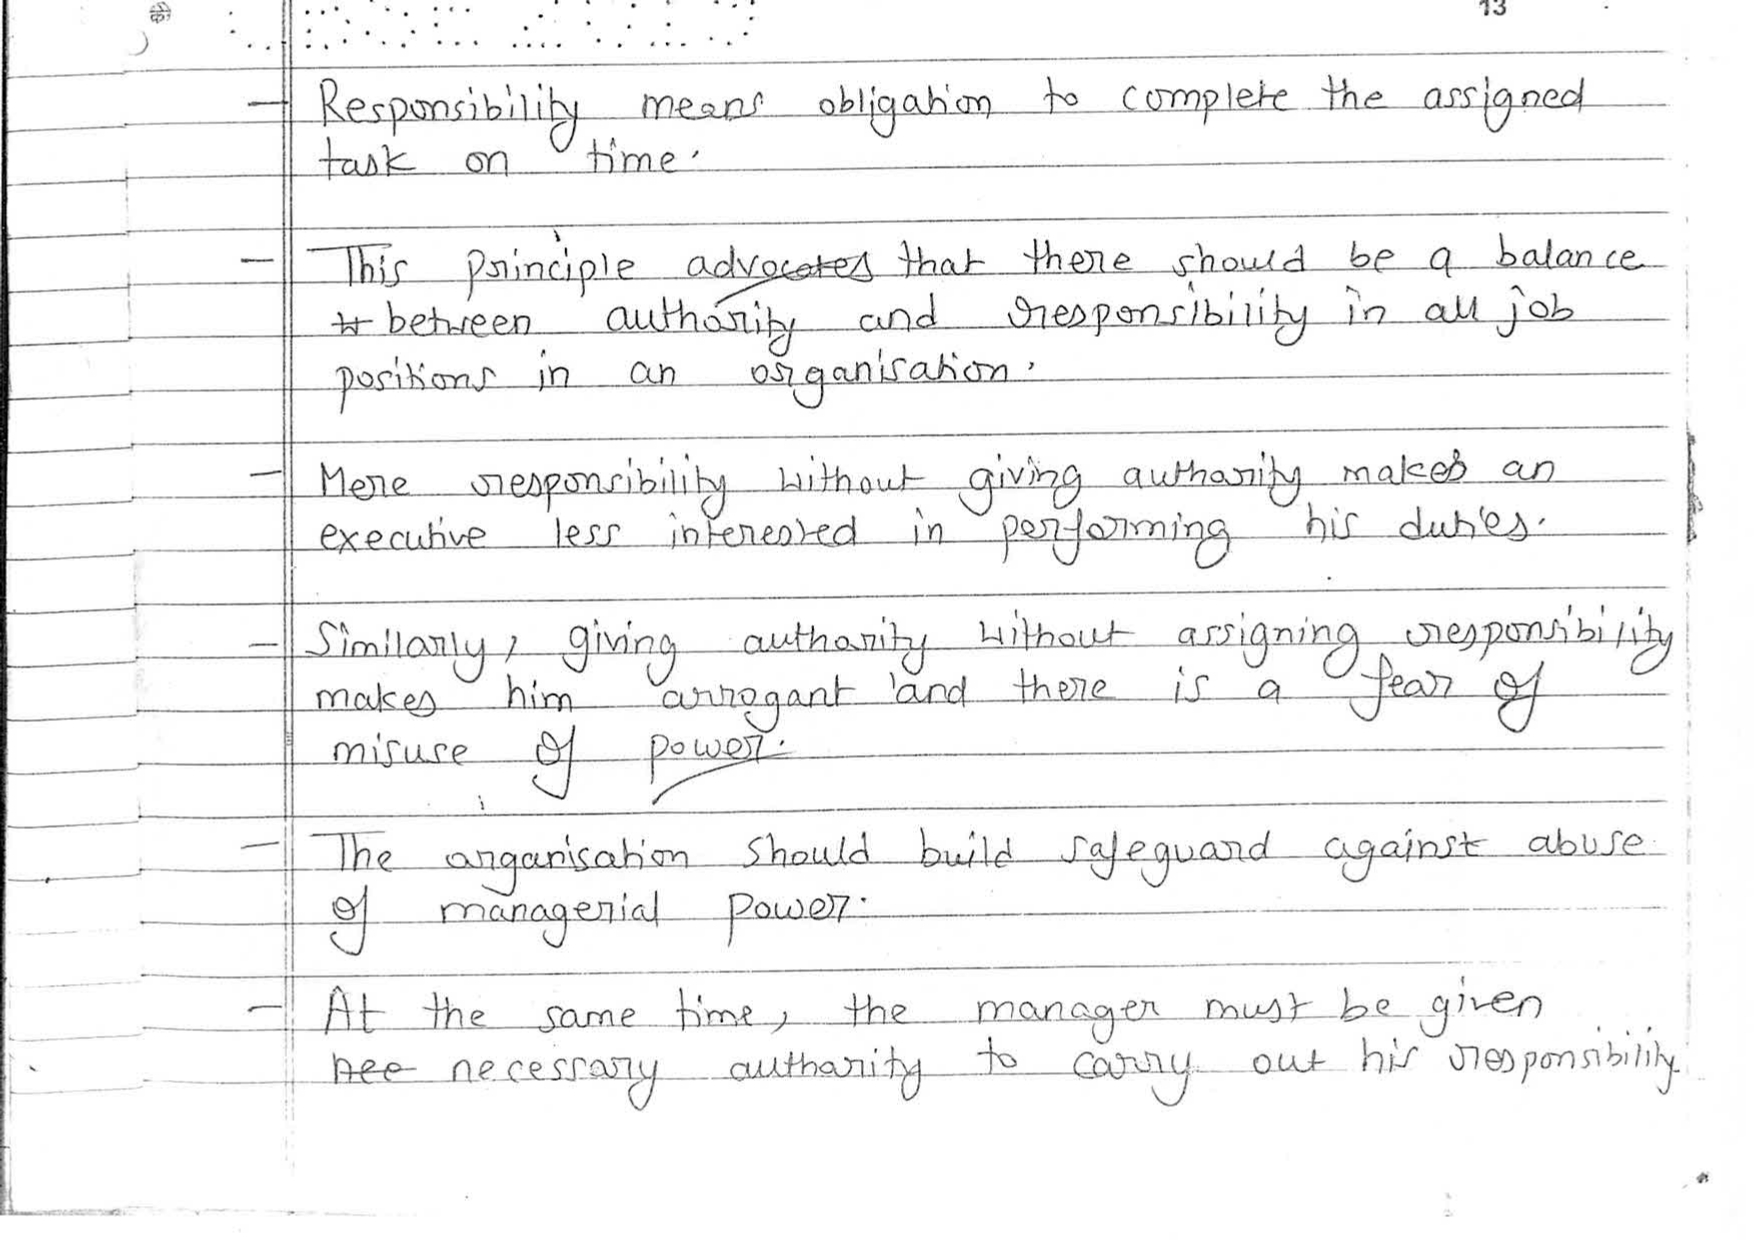 13
- Responsibility means obligation to complete the assigned
task on time.
- This principle advocates that there should be a balance
between authority and responsibility in all job
positions in an organisation.
- Mere responsibility without giving authority makes an
executive less interested in performing his duties.
- Similarly, giving authority without assigning responsibility
makes him arrogant and there is a fear of
misuse of power.
- The organisation should build safeguard against abuse
of managerial power.
- At the same time, the manager must be given
nec necessary authority to carry out his responsibility.